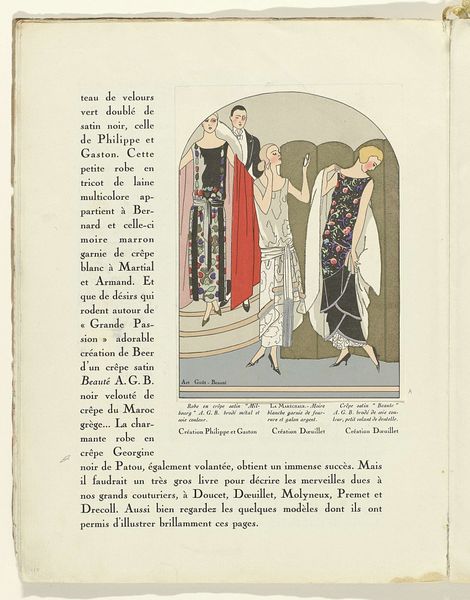 teau de velours
vert doublé de
satin noir, celle
de Philippe et
Gaston. Cette
petite robe en
tricot de laine
multicolore ap-
partient à Ber-
nard et celle-ci
moire marron
garnie de crêpe
blanc à Martial
et Armand. Et
que de désirs qui
rodent autour de
« Grande Pas-
sion » adorable
création de Beer
d'un crêpe satin
Beauté A. G. B.
noir velouté de
crêpe du Maroc
grège... La char-
mante robe en
crêpe Georgine
noir de Patou, également volantée, obtient un immense succès. Mais
il faudrait un très gros livre pour décrire les merveilles dues à
nos grands couturiers, à Doucet, Dœuillet, Molyneux, Premet et
Drecoll. Aussi bien regardez les quelques modèles dont ils ont
permis d'illustrer brillamment ces pages.
Art Goût - Beauté
Robe en crêpe satin "Mil-
bourg" A. G. B. brodé métal et
soie couleur.
Création Philippe et Gaston
La Maréchale. - Moire
blanche garnie de four-
rure et galon argent.
Création Dœuillet
Crêpe satin "Beauté"
A. G. B. brodé de soie cou-
leur, petit volant de dentelle.
Création Dœuillet